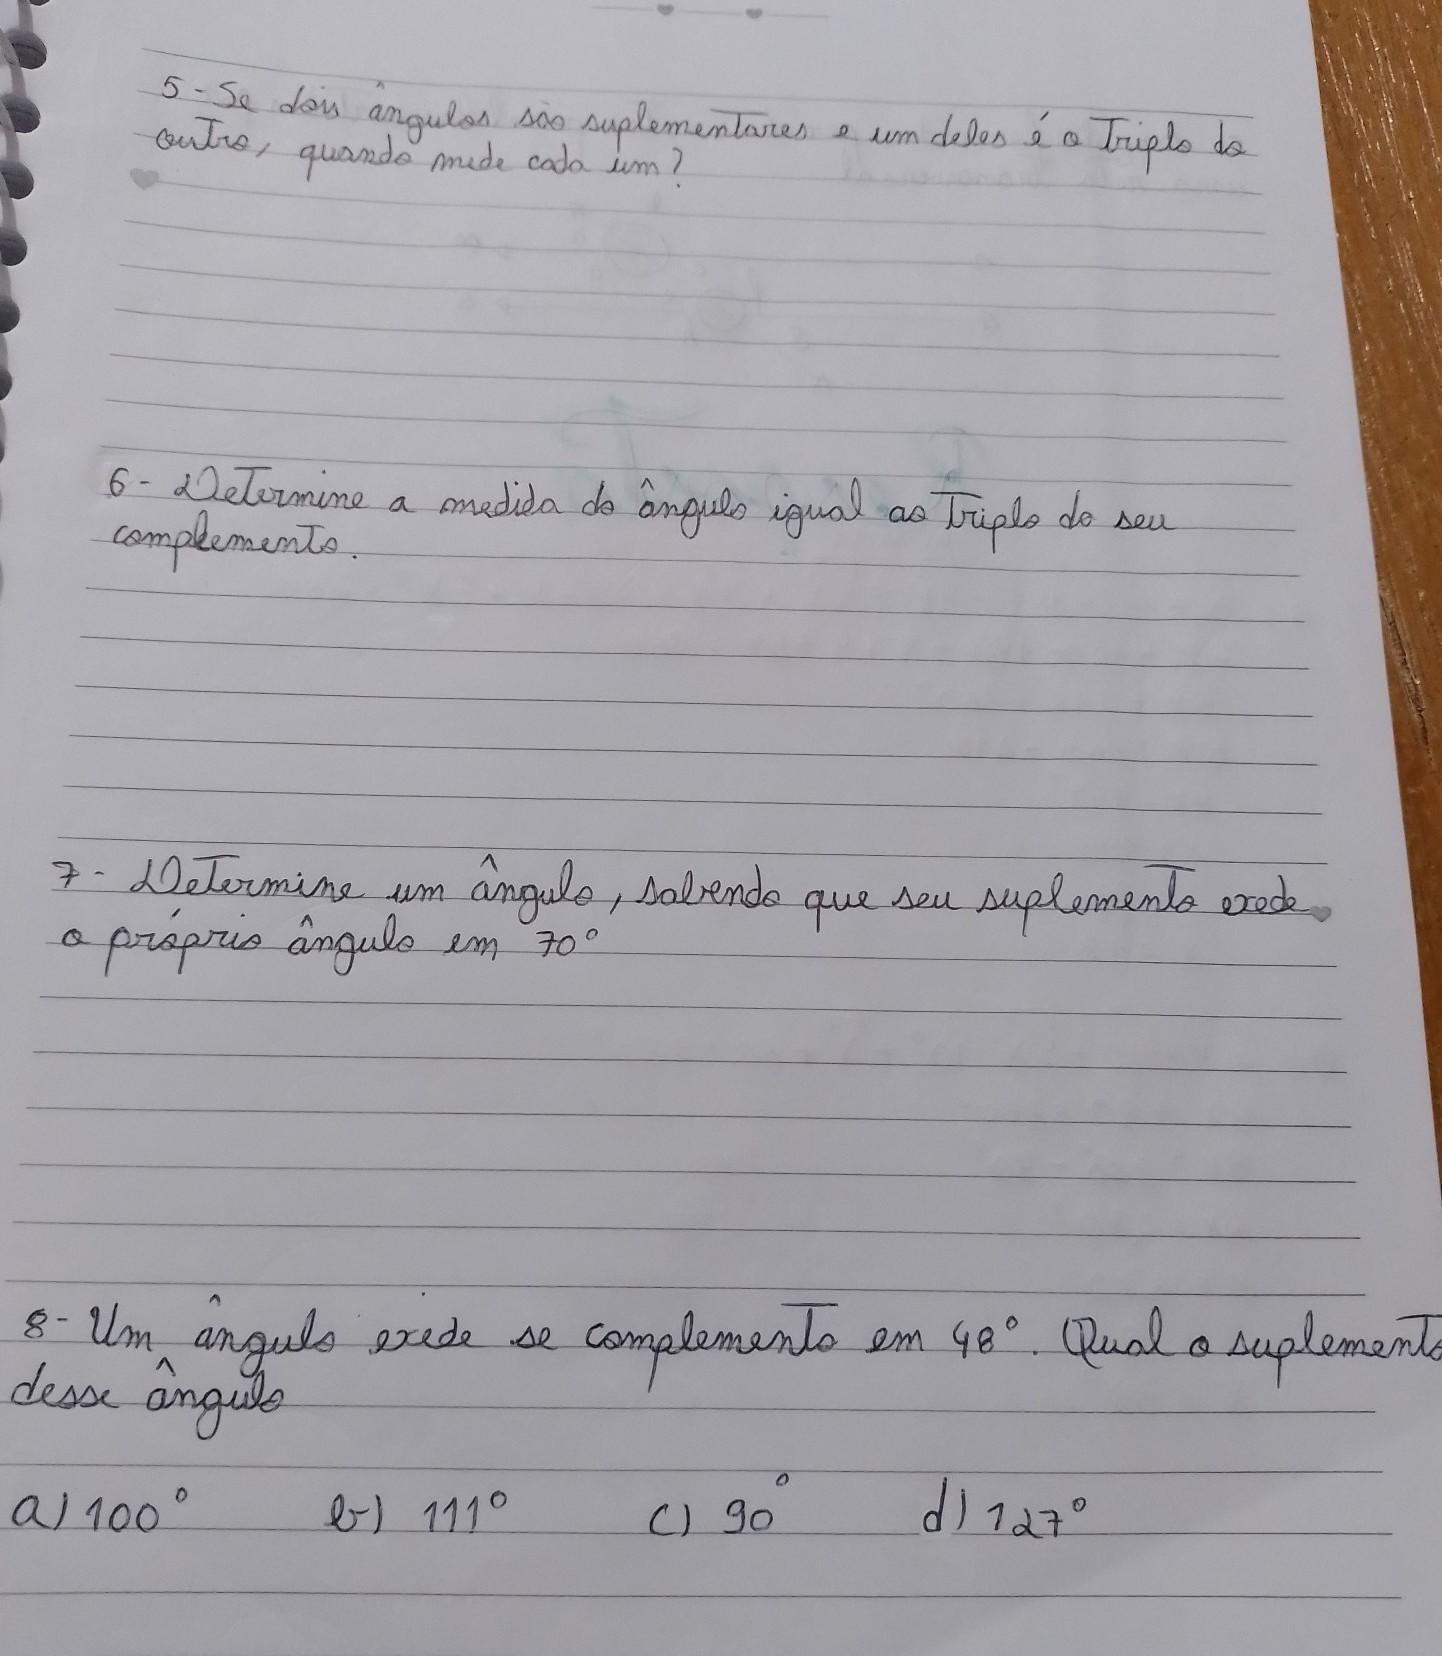 5 - Se dois ângulos são suplementares e um deles é o Triplo do
outro, quando mede cada um?
6 - Determine a medida do ângulo igual ao Triplo do seu
complemento.
7 - Determine um ângulo, sabendo que seu suplemento exede
o próprio ângulo em 70°
8 - Um ângulo exede se complemento em 48°. Qual o suplemento
desse ângulo
a) 100° b) 111° c) 90° d) 127°